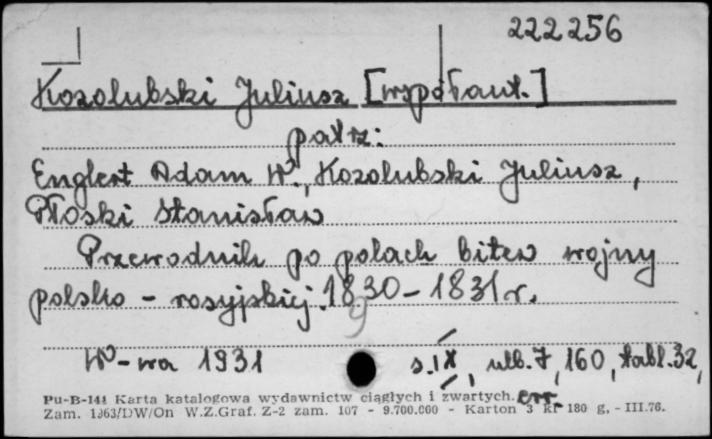 222256
Kozolubski Juliusz [współaut.]
patrz:
Englert Adam W., Kozolubski Juliusz,
Płoski Stanisław
Przewodnik po polach bitew wojny
polsko - rosyjskiej 1830-1831 r.
W-wa 1931 s. IX, ulb. 7, 160, tabl. 32,
Pu-B-144 Karta katalogowa wydawnictw ciągłych i zwartych. err.
Zam. 1363/DW/On W.Z.Graf. Z-2 zam. 107 - 9.700.000 - Karton 3 kl 180 g. - III.76.